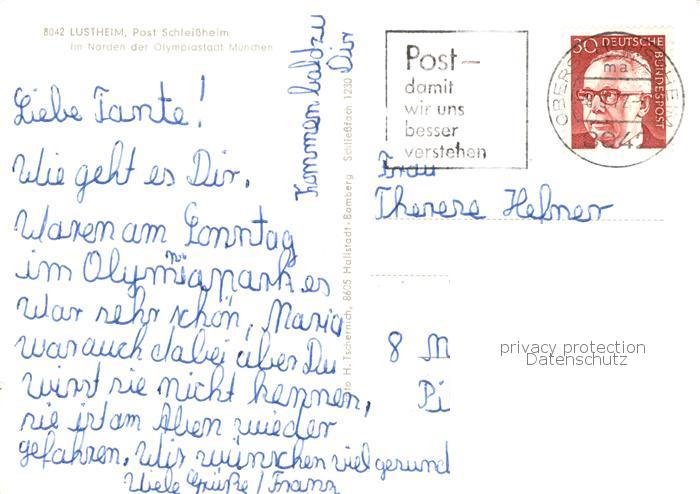 8042 LUSTHEIM, Post Schleißheim
im Norden der Olympiastadt München
Liebe Tante!
Wie geht es Dir.
Waren am Sonntag
im Olympiapark es
war sehr schön, Maria
war auch dabei aber Du
wirst sie nicht kennen,
sie ist am Aben wieder
gefahren. Wir wünschen viel gesund
Viele Grüße / Franz
Kommen bald zu
Dir
H. Tschernich, 8605 Hallstadt-Bamberg Schließfach 1230
Post—
damit
wir uns
besser
verstehen
30 DEUTSCHE
BUNDESPOST
ma
8042
Frau
Therese Hefner
8 M
Pi
privacy protection
Datenschutz